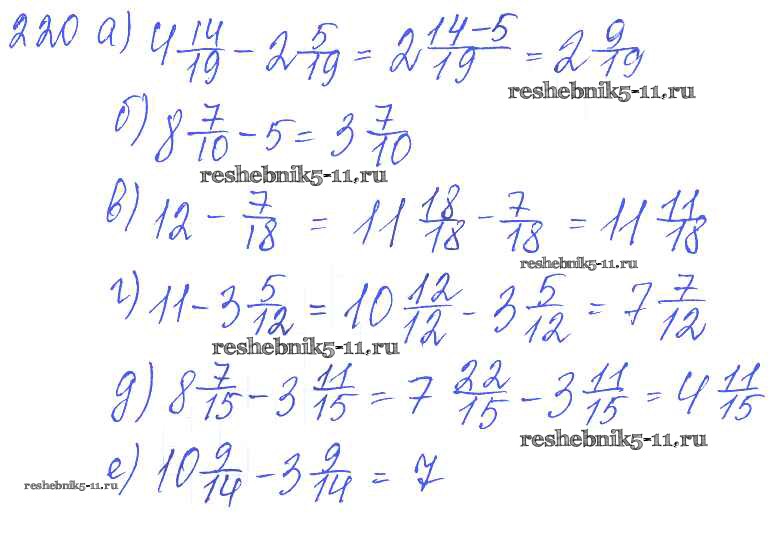 220 а) 4 14/19 − 2 5/19 = 2 (14−5)/19 = 2 9/19
reshebnik5-11.ru
б) 8 7/10 − 5 = 3 7/10
reshebnik5-11.ru
в) 12 − 7/18 = 11 18/18 − 7/18 = 11 11/18
reshebnik5-11.ru
г) 11 − 3 5/12 = 10 12/12 − 3 5/12 = 7 7/12
reshebnik5-11.ru
д) 8 7/15 − 3 11/15 = 7 22/15 − 3 11/15 = 4 11/15
reshebnik5-11.ru
е) 10 9/14 − 3 9/14 = 7
reshebnik5-11.ru